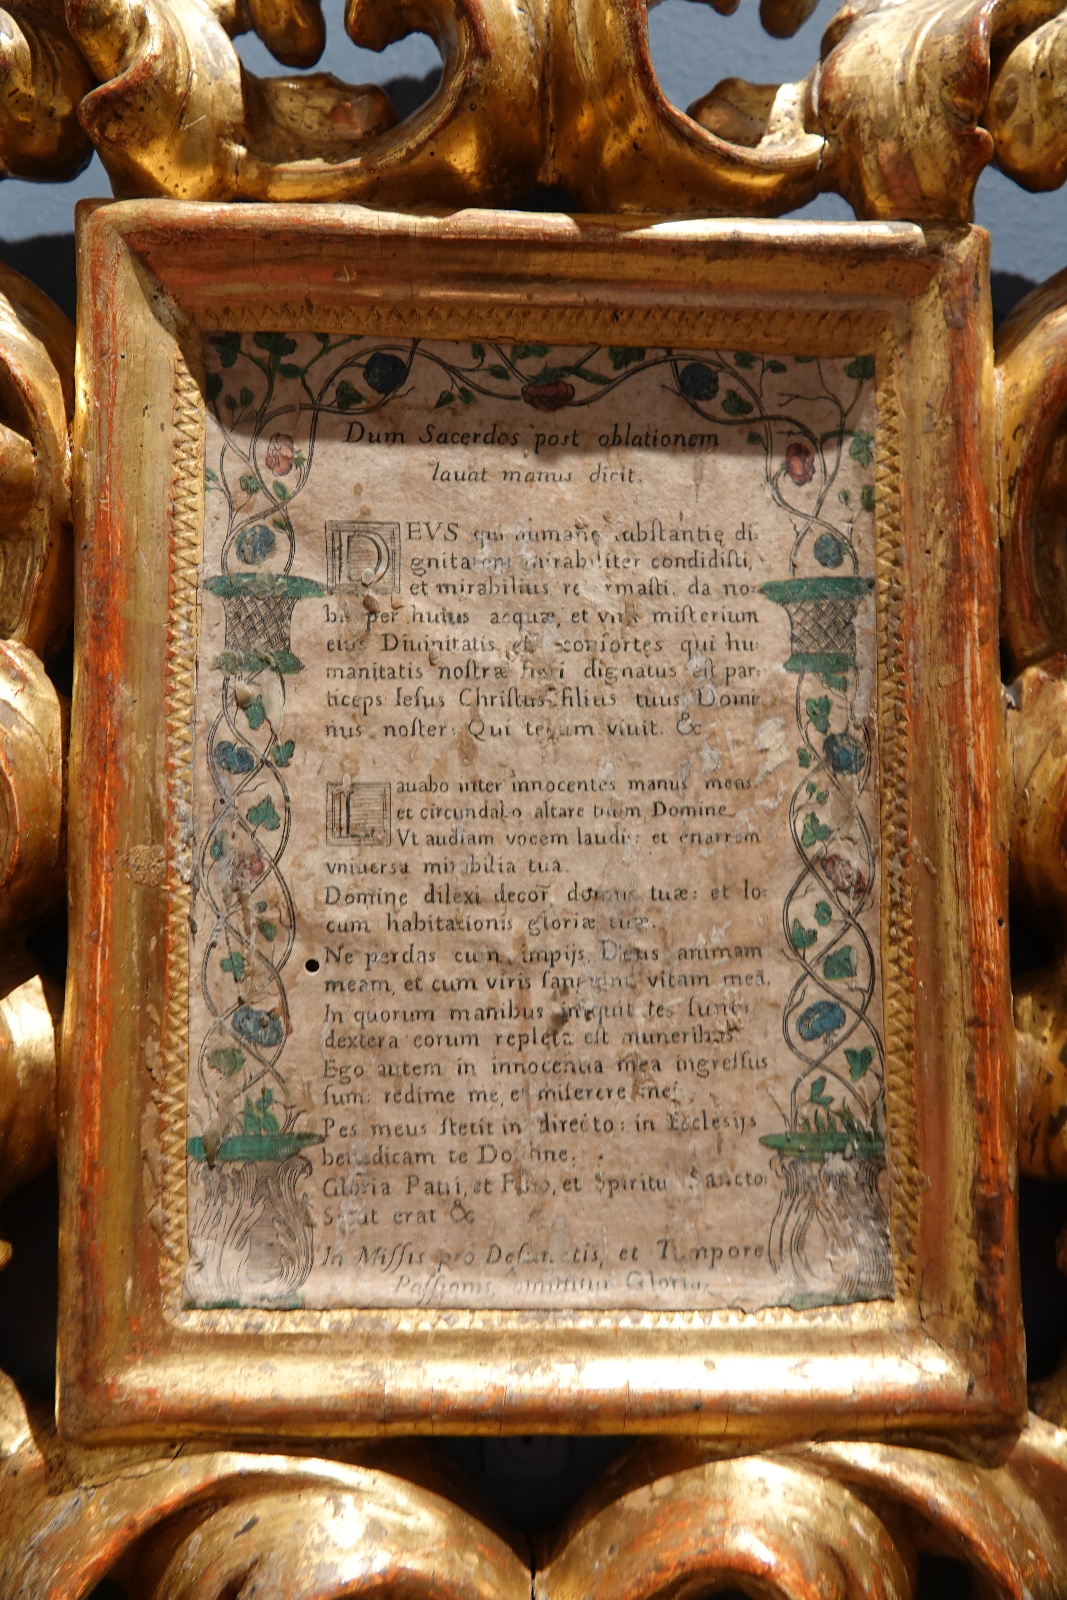 Dum Sacerdos post oblationem
lavat manus dicit.
DEVS qui humanę ſubſtantię di-
gnitatem mirabiliter condidiſti,
et mirabilius reformaſti, da no-
bis per huius acquæ, et vini miſterium
eius Diuinitatis eſſe conſortes qui hu-
manitatis noſtræ fieri dignatus eſt par-
ticeps Ieſus Chriſtus filius tuus Domi-
nus noſter: Qui tecum viuit. &
Lauabo inter innocentes manus meas:
et circundabo altare tuum Domine
Vt audiam vocem laudis: et enarrem
vniuersa mirabilia tua.
Domine dilexi decorē domus tuæ: et lo-
cum habitationis gloriæ tuæ.
Ne perdas cum impijs Deus animam
meam, et cum viris ſanguinū vitam meā.
In quorum manibus iniquitates ſunt:
dextera eorum repleta eſt muneribus.
Ego autem in innocentia mea ingreſſus
ſum: redime me, et miſerere mei.
Pes meus ſtetit in directo: in Eccleſijs
benedicam te Domine.
Gloria Patri, et Filio, et Spiritui Sancto:
Sicut erat &
In Miſſis pro Defunctis, et Tempore
Paſſionis, omittitur Gloria.